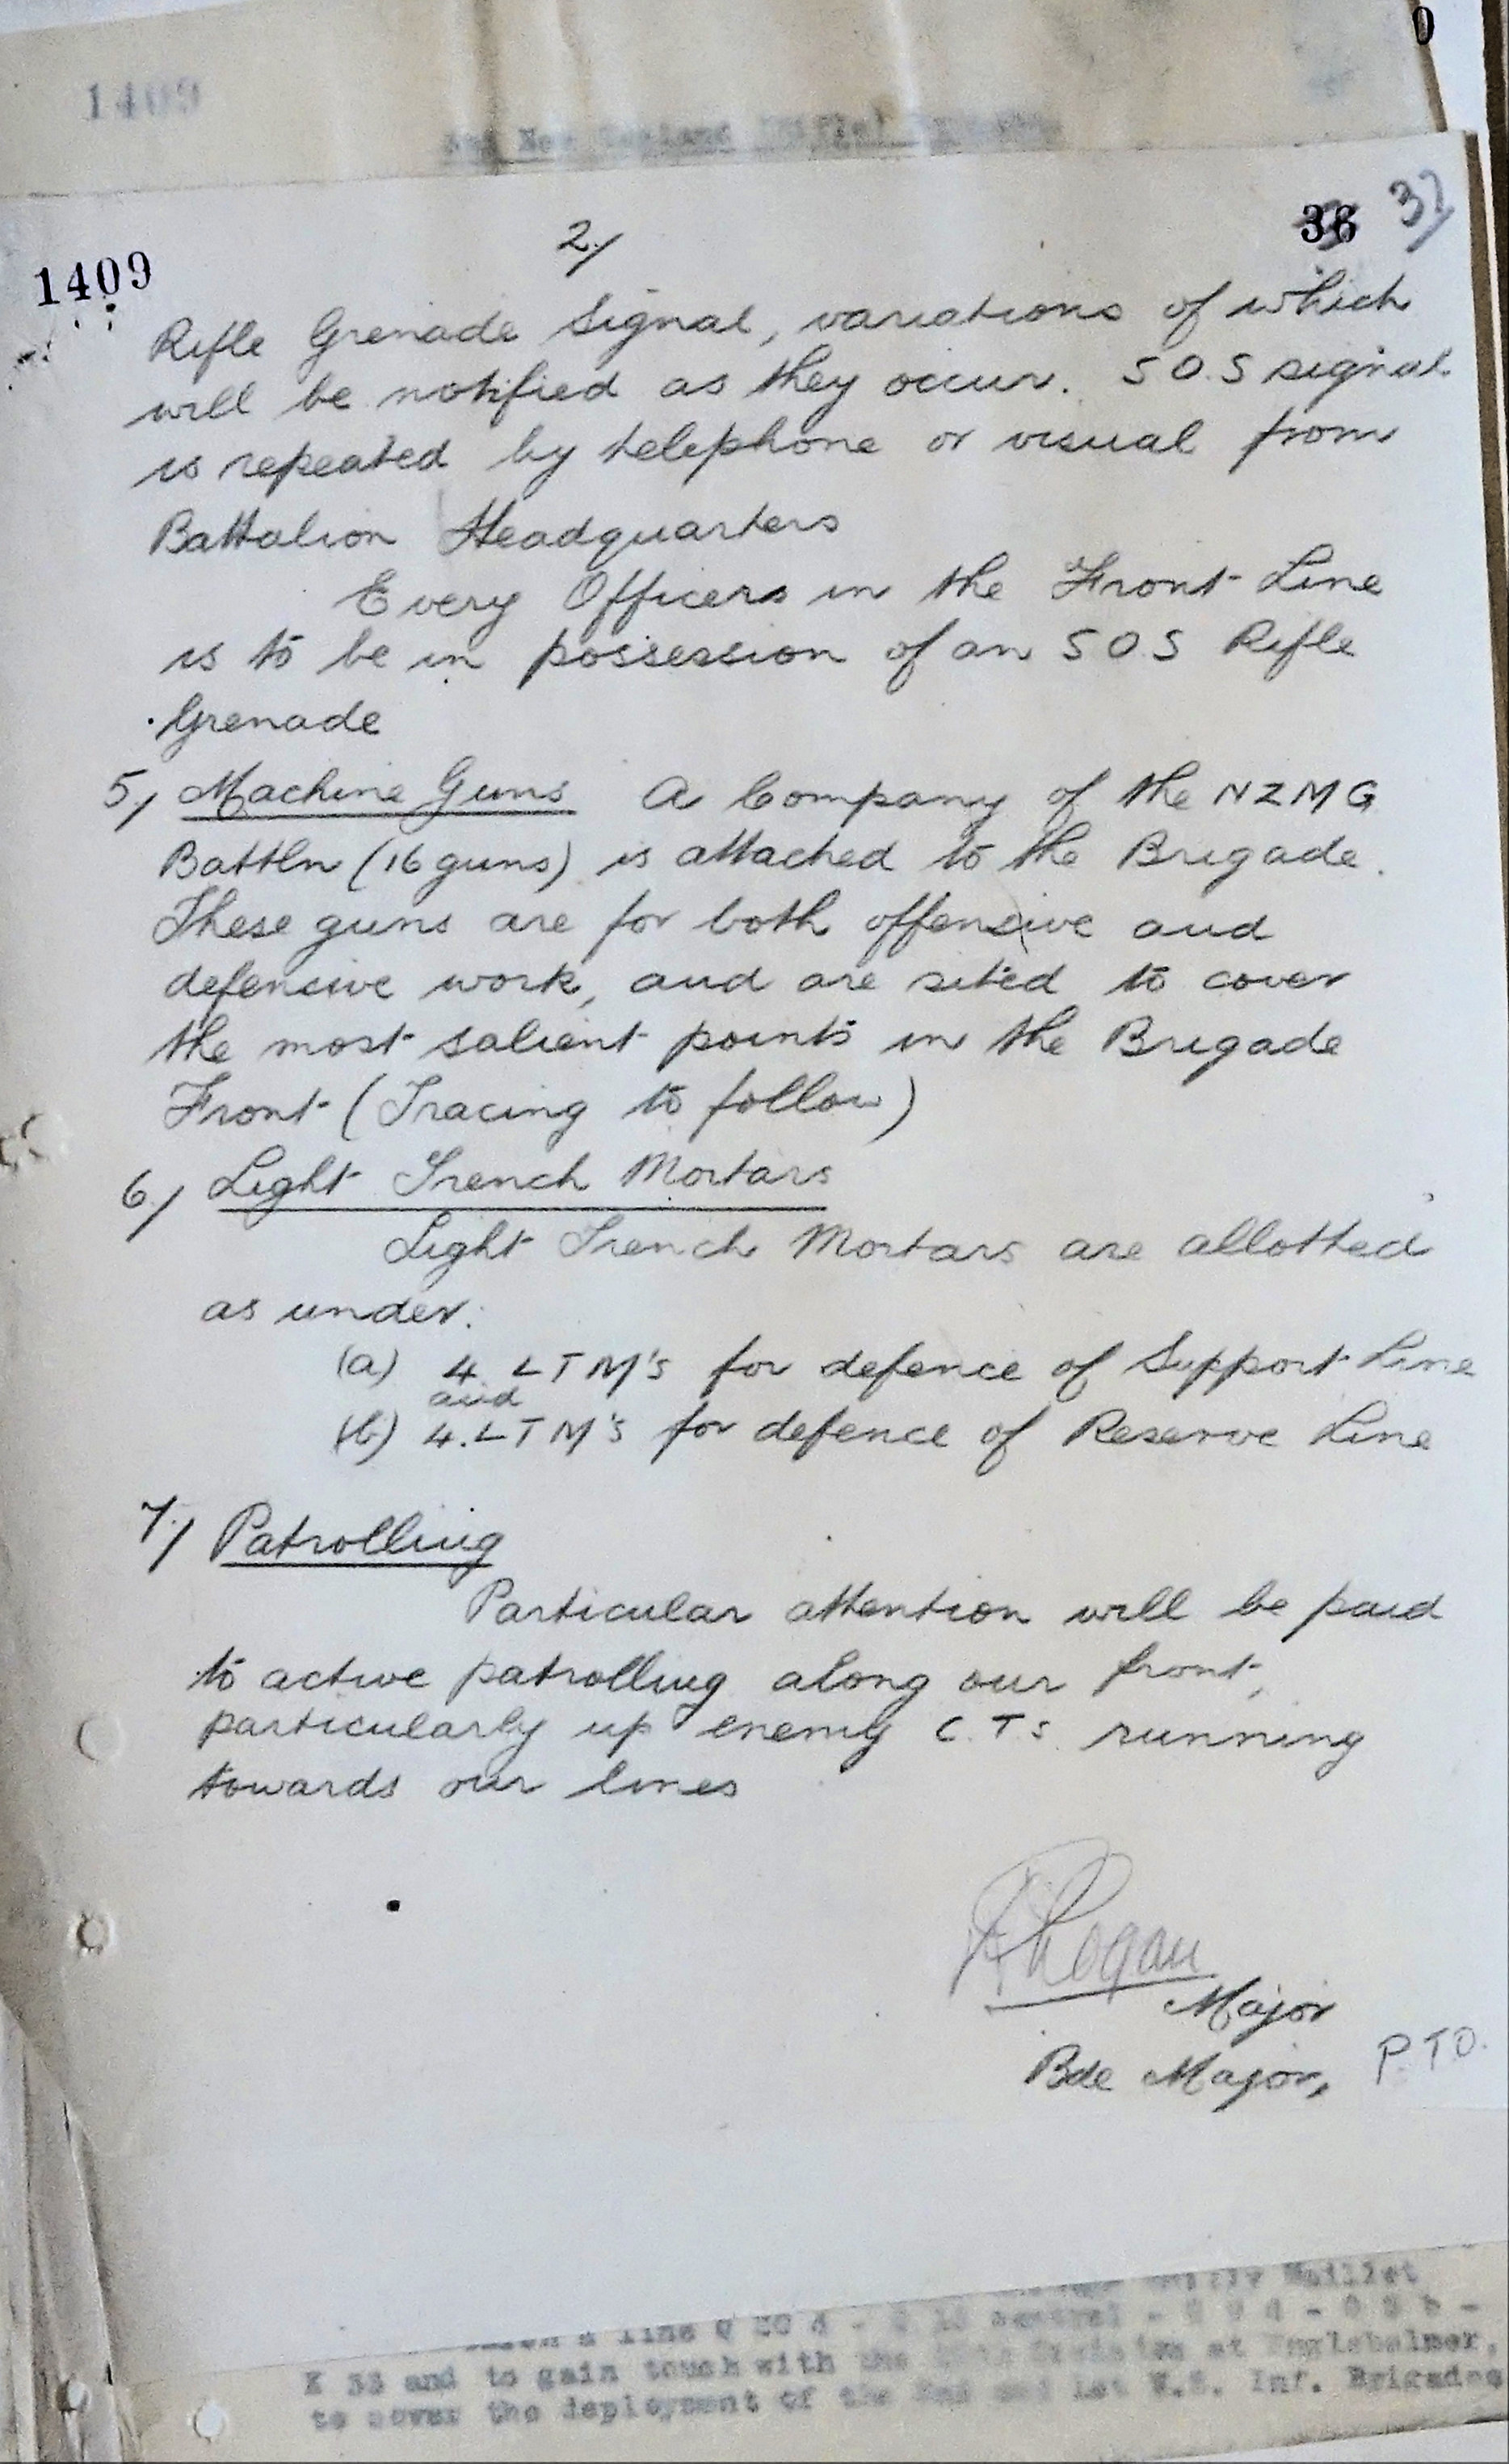 0
1409
2nd New Zealand (Rifle) Brigade.
36 37
2/
1409
Rifle Grenade Signal, variations of which
will be notified as they occur. S O.S signal
is repeated by telephone or visual from
Battalion Headquarters
Every Officers in the Front Line
is to be in possession of an S O.S Rifle
Grenade
5/ Machine Guns A Company of the N Z M G
Battln (16 guns) is attached to the Brigade.
These guns are for both offensive and
defensive work, and are sited to cover
the most salient points in the Brigade
Front (Tracing to follow)
6./ Light Trench Mortars
Light Trench Mortars are allotted
as under:
(a) 4 L T M's for defence of Support Line
and
(b) 4. L T M's for defence of Reserve Line
7./ Patrolling
Particular attention will be paid
to active patrolling along our front,
particularly up enemy C.T.s. running
towards our lines
Major
Bde Major,
P.T.O.
Mailly Maillet
line Q 20 d - central -
K 33 and to gain touch with the Division at Englebelmer,
to cover the deployment of the 2nd and 1st N.Z. Inf. Brigades